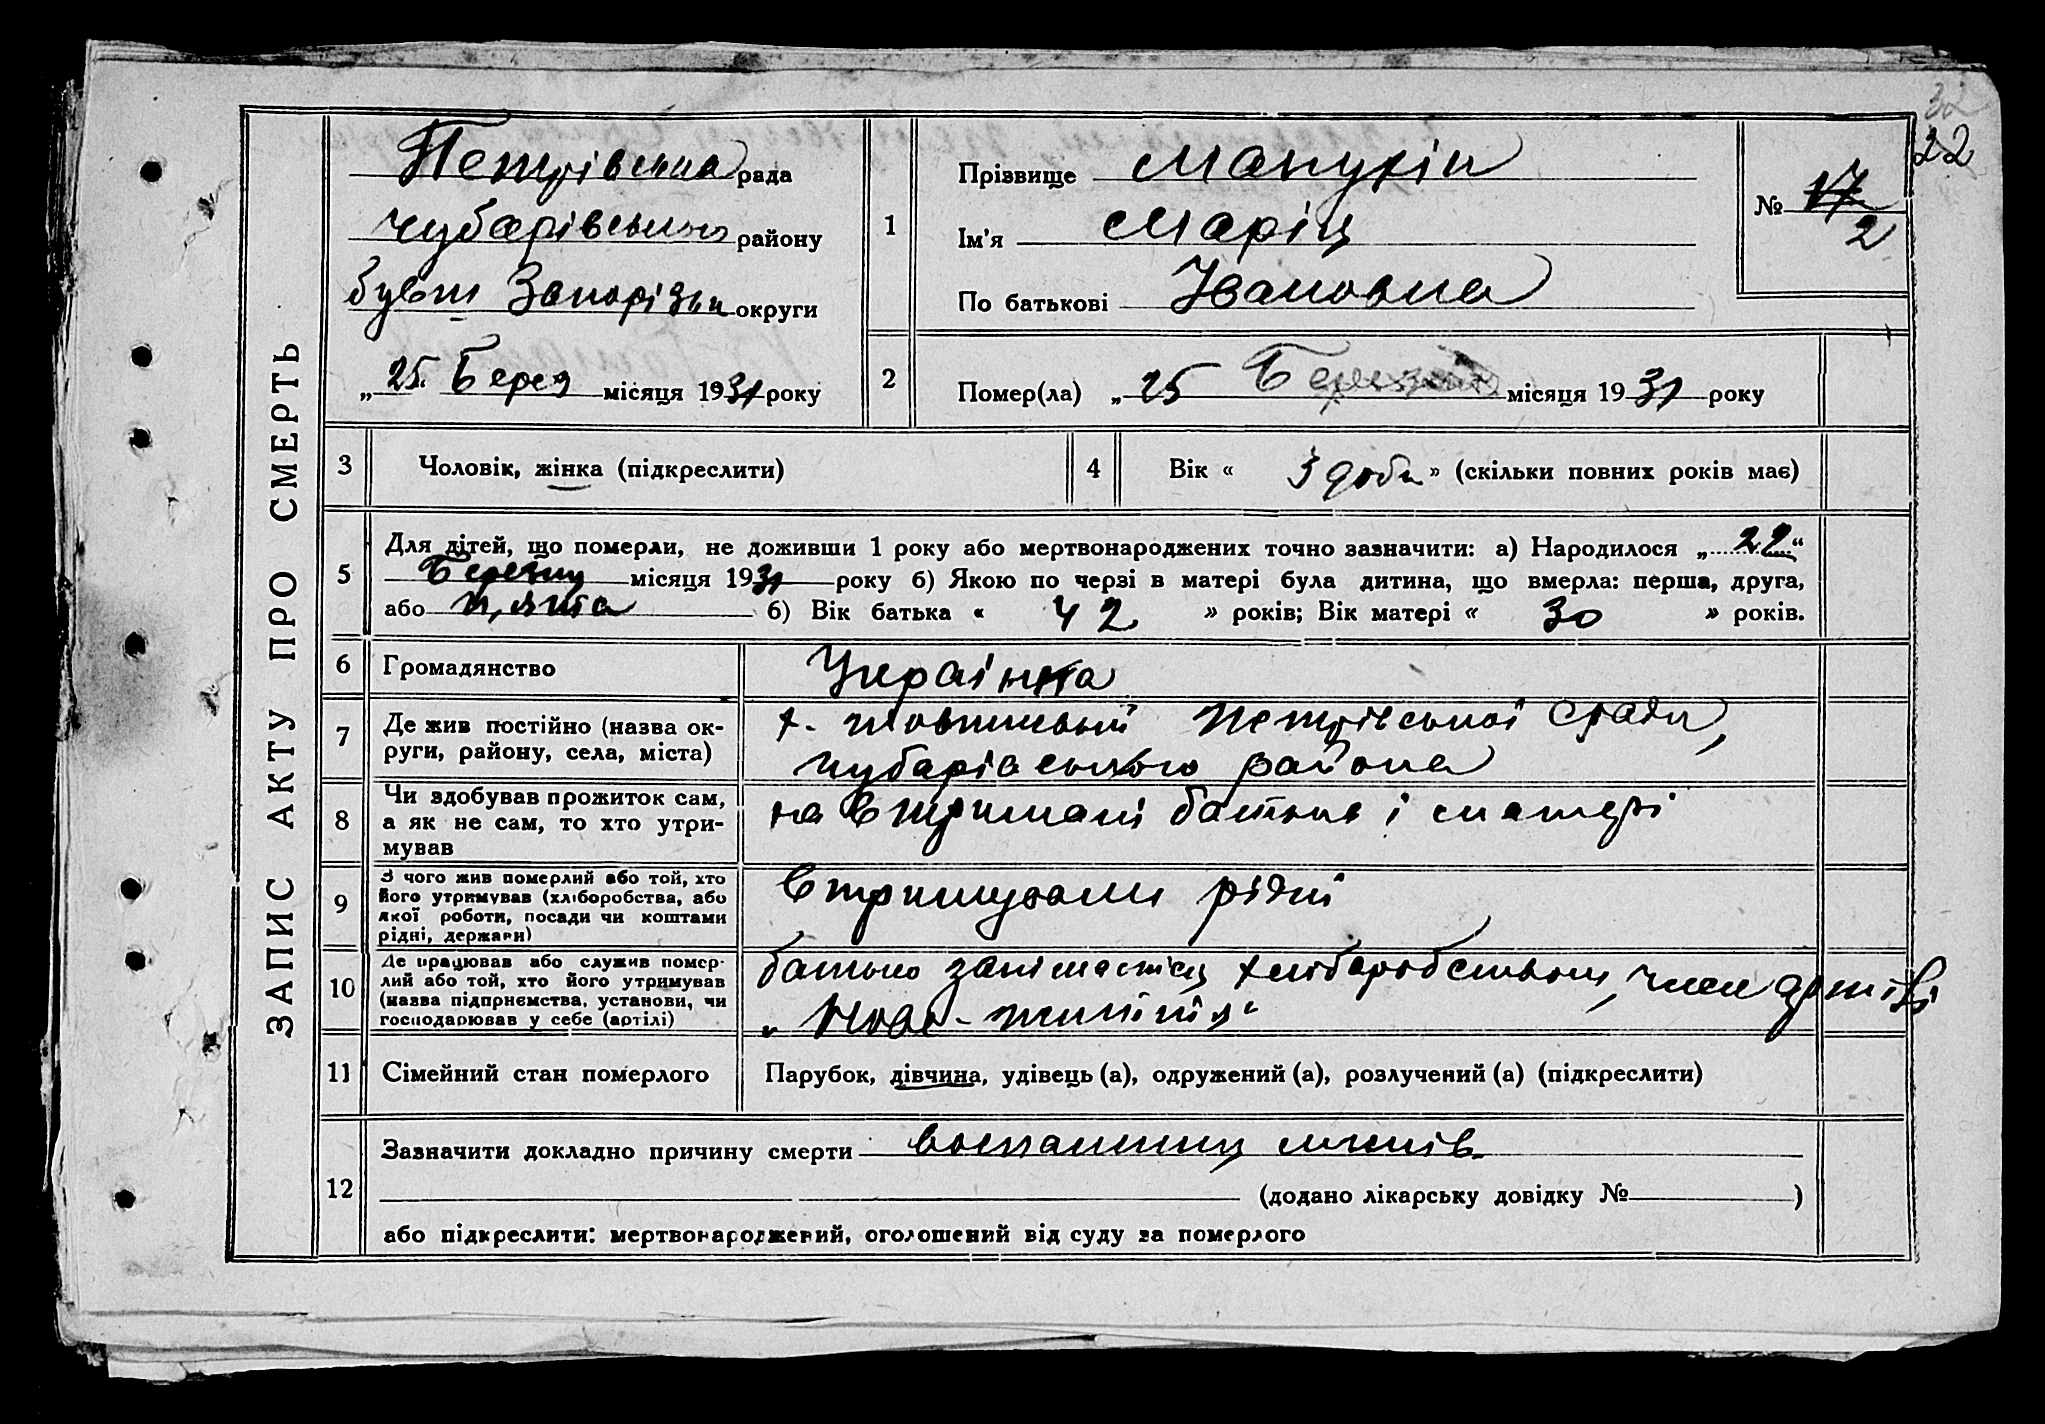 32
22
ЗАПИС АКТУ ПРО СМЕРТЬ
Петрівська рада
Чубарівського району
бувш Запорізьк округи
„25. Берез місяця 1931 року
1
Прізвище Манухін
Ім'я Марія
По батькові Івановна
№ 17
2
2
Помер(ла) „25 Березня місяця 1931 року
3
Чоловік, жінка (підкреслити)
4
Вік « 3 доби » (скільки повних років має)
5
Для дітей, що померли, не доживши 1 року або мертвонароджених точно зазначити: а) Народилося „22“
Березня місяця 1931 року б) Якою по черзі в матері була дитина, що вмерла: перша, друга,
або п,ята б) Вік батька « 42 » років; Вік матері « 30 » років.
6
Громадянство
Українка
7
Де жив постійно (назва ок-
руги, району, села, міста)
х. Петрівської Сради,
Чубарівського района
8
Чи здобував прожиток сам,
а як не сам, то хто утри-
мував
на втримані батька і матері
9
З чого жив померлий або той, хто
його утримував (хліборобства, або
якої роботи, посади чи коштами
рідні, держави)
втримували рідні
10
Де працював або служив помер-
лий або той, хто його утримував
(назва підприємства, установи, чи
господарював у себе (артілі)
батько занімается хліборобством, член артілі
„Нове-життія“
11
Сімейний стан померлого
Парубок, дівчина, удівець (а), одружений (а), розлучений (а) (підкреслити)
12
Зазначити докладно причину смерти воспаления
(додано лікарську довідку № )
або підкреслити: мертвонароджений, оголошений від суду за померлого